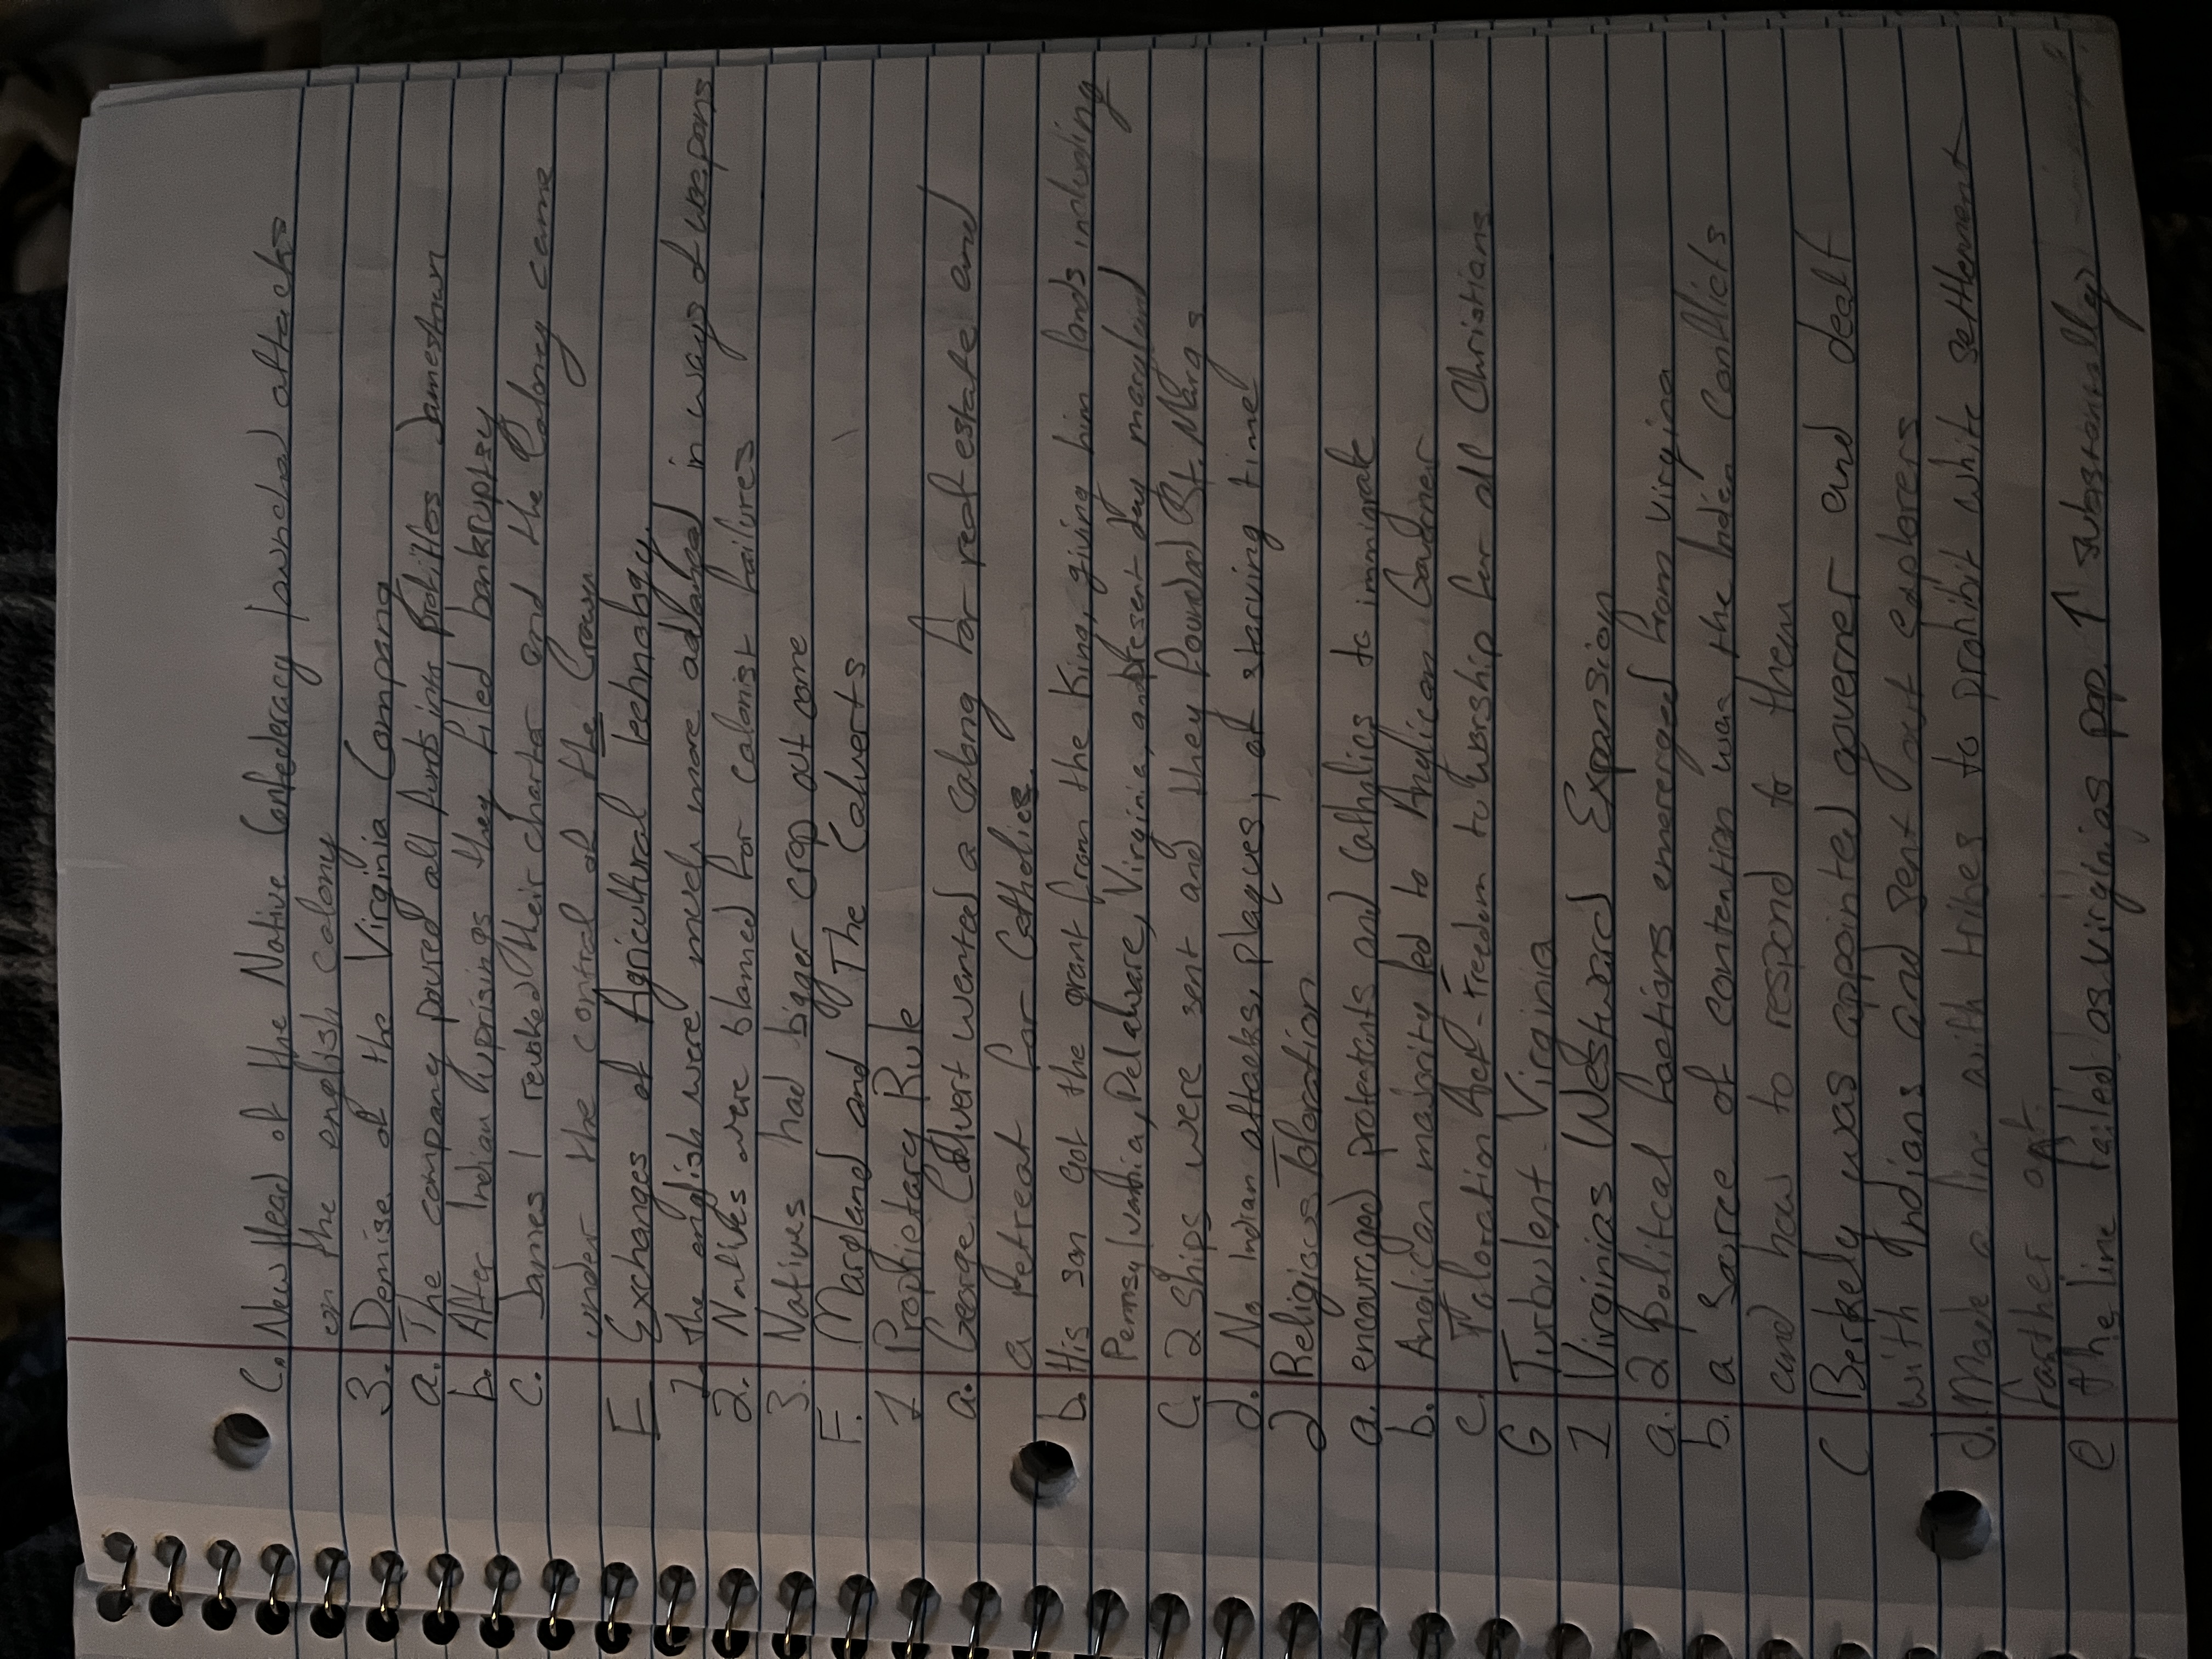 C. New Head of the Native Confederacy launched attacks
on the english colony
3. Demise of the Virginia Company
a. The company poured all funds into Profitless Jamestown
b. After Indian Uprisings they filed bankruptsy
c. James I revoked their charter and the Colony came
under the control of the Crown
E Exchanges of Agricultural technology.
1. the english were much more advanged in ways of weapons
2. Natives were blamed for colonist failures
3. Natives had bigger crop outcome
F. Maryland and The Calverts
1 Proprietary Rule
a. George Calvert wanted a colony for real estate and
a Retreat for Catholics.
b. His son got the grant from the King, giving him lands including
Pennsylvania, Delaware, Virginia, and present day maryland
C. 2 Ships were sent and they founded St. Marys
d. No Indian attacks, plagues, or starving time
2 Religious Toleration
a. encouraged protestants and Catholics to immigrate
b. Anglican majority led to Anglican Governer
c. Toloration Act - Freedom to worship for all Christians
G Turbulent Virginia
1 Virginias Westward Expansion
a. 2 Politcal factions emererged from virgina
b. a Source of contention was the Inden Conflicts
and how to respond to them
C Berkely was appointed governer and dealt
with Indians and sent out explorers
d. Made a line with tribes to prohibit white settlement
farther out.
e the line failed as virginias pop. ↑ substantially